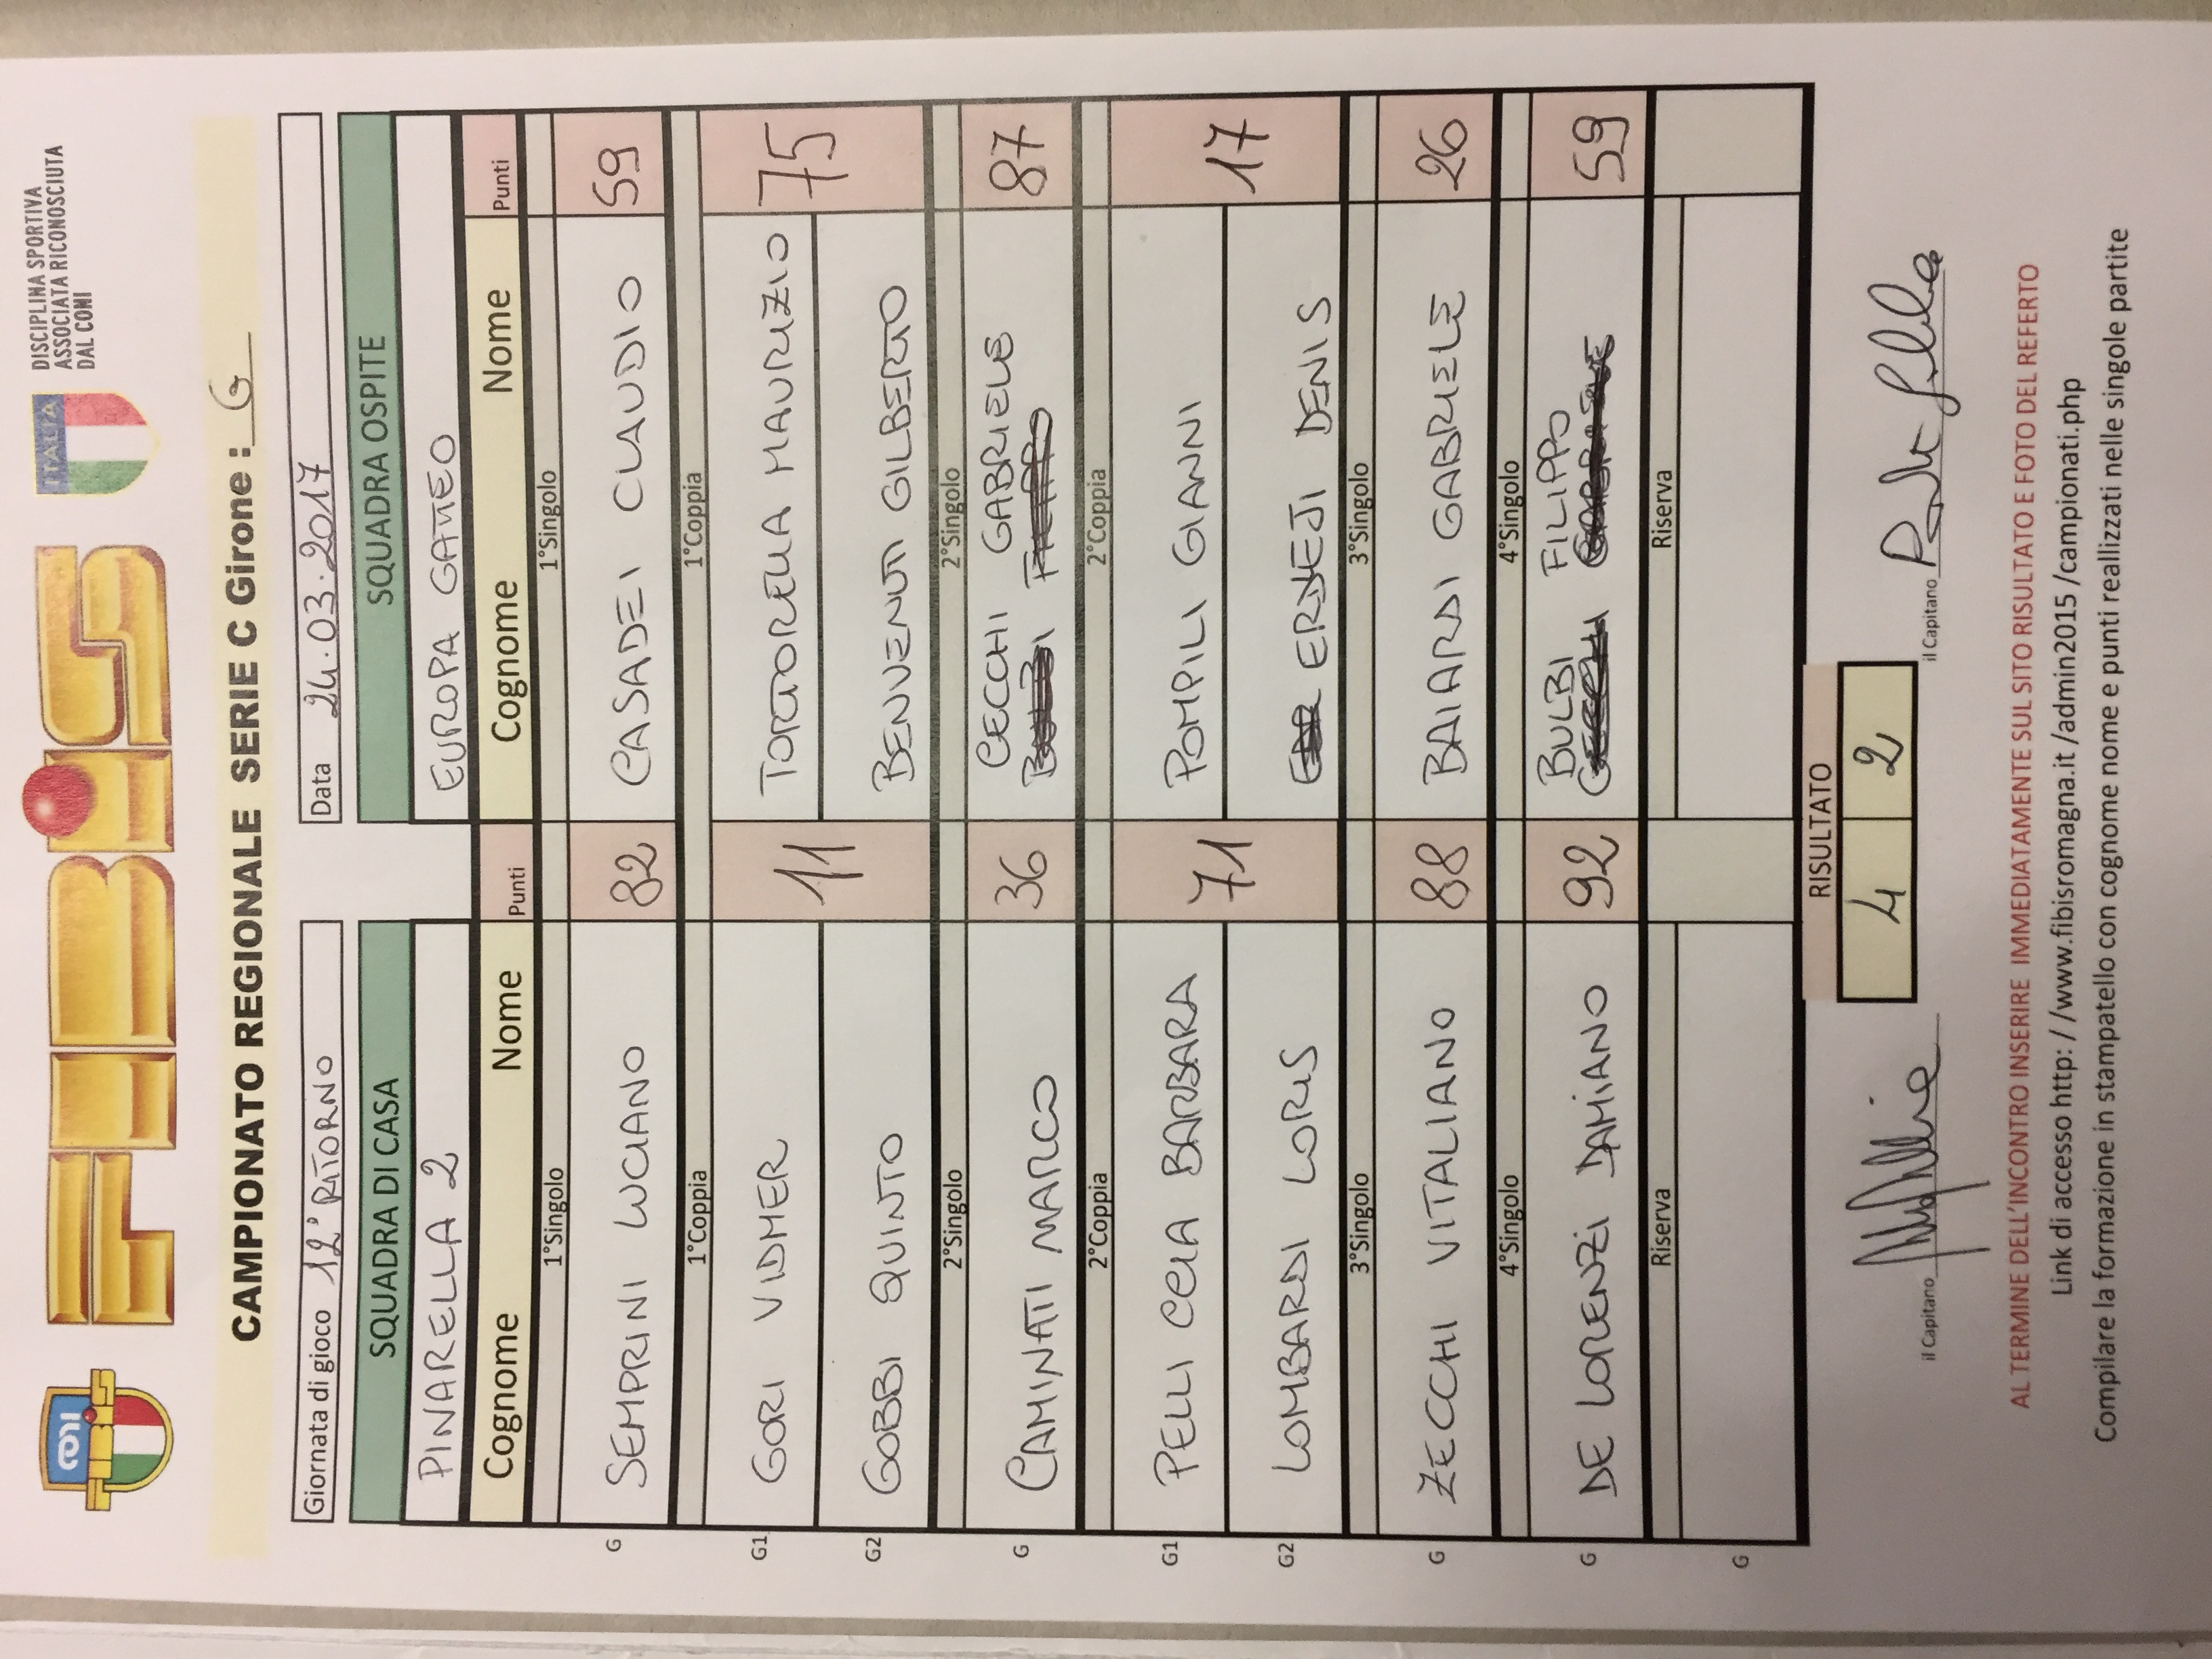 FIBiS
ITALIA
DISCIPLINA SPORTIVA
ASSOCIATA RICONOSCIUTA
DAL CONI
CAMPIONATO REGIONALE SERIE C Girone : G
Giornata di gioco 12° RITORNO Data 24.03.2017
SQUADRA DI CASA SQUADRA OSPITE
PINARELLA 2 EUROPA GATTEO
Cognome Nome Punti Cognome Nome Punti
1°Singolo 1°Singolo
G SEMPRINI LUCIANO 82 CASADEI CLAUDIO 59
1°Coppia 1°Coppia
G1 GORI VIDMER 11 TORTORELLA MAURIZIO 75
G2 GOBBI QUINTO BENVENUTI GILBERTO
2°Singolo 2°Singolo
G CAMINATI MARCO 36 CECCHI GABRIELE 87
2°Coppia 2°Coppia
G1 PELLICCIA BARBARA 71 POMPILI GIANNI 17
G2 LOMBARDI LORIS ERNEJI DENIS
3°Singolo 3°Singolo
G ZECCHI VITALIANO 88 BAIARDI GABRIELE 26
4°Singolo 4°Singolo
G DE LORENZI DAMIANO 92 BULBI FILIPPO 59
Riserva Riserva
G
RISULTATO
4 2
il Capitano il Capitano
AL TERMINE DELL'INCONTRO INSERIRE IMMEDIATAMENTE SUL SITO RISULTATO E FOTO DEL REFERTO
Link di accesso http: / /www.fibisromagna.it /admin2015 /campionati.php
Compilare la formazione in stampatello con cognome nome e punti reallizzati nelle singole partite